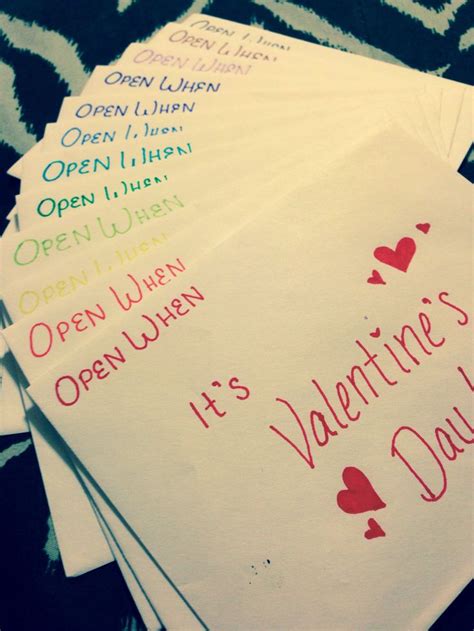 OPEN WHEN
OPEN WHEN
OPEN WHEN
OPEN WHEN
OPEN WHEN
OPEN WHEN
OPEN WHEN
OPEN WHEN
OPEN WHEN
OPEN WHEN
OPEN WHEN
OPEN WHEN
It's
Valentine's
Day!